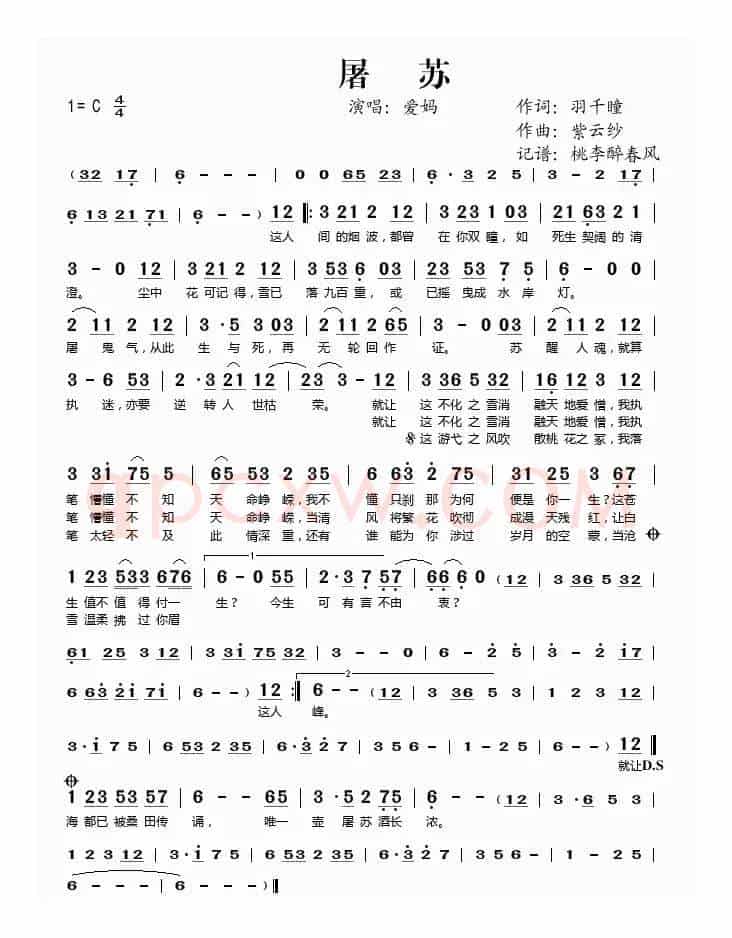 屠 苏
1= C 4/4 演唱：爱妈 作词：羽千瞳
作曲：紫云纱
记谱：桃李醉春风
( 32 17 | 6 - - - | 0 0 65 23 | 6 · 3 2 5 | 3 - 2 17 |
6 13 21 71 | 6 - - ) 12 |: 3 21 2 12 | 3 23 1 03 | 21 63 2 1 |
这人 间的烟波，都曾 在你双瞳，如 死生契阔的清
3 - 0 12 | 3 21 2 12 | 3 53 6 03 | 23 53 7 5 | 6 - 0 0 |
澄。 尘中 花可记得，雪已 落九百重，或 已摇曳成水岸 灯。
2 11 2 2 | 3 · 5 3 03 | 2 11 2 65 | 3 - 0 03 | 2 11 2 12 |
屠鬼气，从此 生与死，再 无轮回作 证。 苏 醒人魂，就算
3 - 6 53 | 2 · 3 21 12 | 23 3 - 12 | 3 36 5 32 | 16 12 3 23 |
执迷，亦要 逆转人世枯 荣。 就让 这不化之雪消 融天地爱憎，我执
就让 这不化之雪消 融天地爱憎，我执
这游弋之风吹 散桃花之冢，我落
3 31 75 5 | 65 53 5 12 | 3 53 2 75 | 35 25 3 67 |
笔懵懂不知 天命峥嵘，我不 懂只刹那为何 便是你一生？这苍
笔懵懂不知 天命峥嵘，当清 风将繁花吹彻 成漫天残红，让白
笔太轻不及 此情深重，还有 谁能为你涉过 岁月的空蒙，当沧
1 23 533 676 | 6 - 0 55 | 2 · 3 75 57 | 66 6 0 ( 12 | 3 36 5 32 |
生值不值得付一 生？ 今生 可有言不由 衷？
雪温柔拂过你眉
61 25 3 12 | 3 · 3 5 3 | 3 - - 0 | 6 - 2 5 | 3 - 2 17 |
6 63 21 71 | 6 - - ) 12 :| 6 - - ( 12 | 3 36 5 3 | 1 23 12 3 |
这人 峰。
3 · 1 7 5 | 6 53 2 35 | 6 · 3 27 | 5 · 3 5 6 | 1 - 2 5 | 6 - - ) 12 ‖
就让D.S
1 23 53 57 | 6 - 0 1 | 3 · 5 2 75 | 6 - - ( 12 | 3 · 5 2 3 |
海都已被桑田传 诵， 唯一 壶屠苏酒长 浓。
1 2 3 12 | 3 · 1 75 | 6 53 2 35 | 6 · 3 2 7 | 3 · 5 3 5 | 1 - 2 5 |
6 - - - | 6 - - - ) ‖